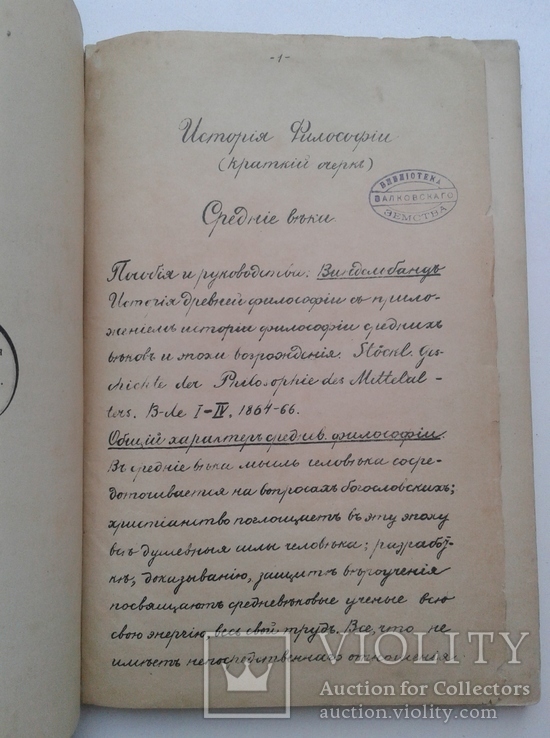 -1-
Исторія Философіи
(краткій очеркъ)
БИБЛІОТЕКА
ВАЛКОВСКАГО
ЗЕМСТВА
Средніе вѣки
Пособія и руководства: Виндельбандъ
Исторія древней философіи съ прило-
женіемъ исторіи философіи среднихъ
вѣковъ и эпохи возрожденія. Stöckl. Ges-
chichte der Philosophie des Mittelal-
ters. B-de I-IV. 1864-66.
Общій характеръ средн.в. философіи.
Въ средніе вѣка мысль человѣка сосре-
доточивается на вопросахъ богословскихъ;
христіанство поглощаетъ въ эту эпоху
всѣ душевныя силы человѣка; разработ-
кѣ, доказыванію, защитѣ вѣроученія
посвящаютъ средневѣковые ученые всю
свою энергію, весь свой трудъ. Все, что не
имѣетъ непосредственнаго отношенія
VIOLITY
Auction for Collectors
auction.violity.com